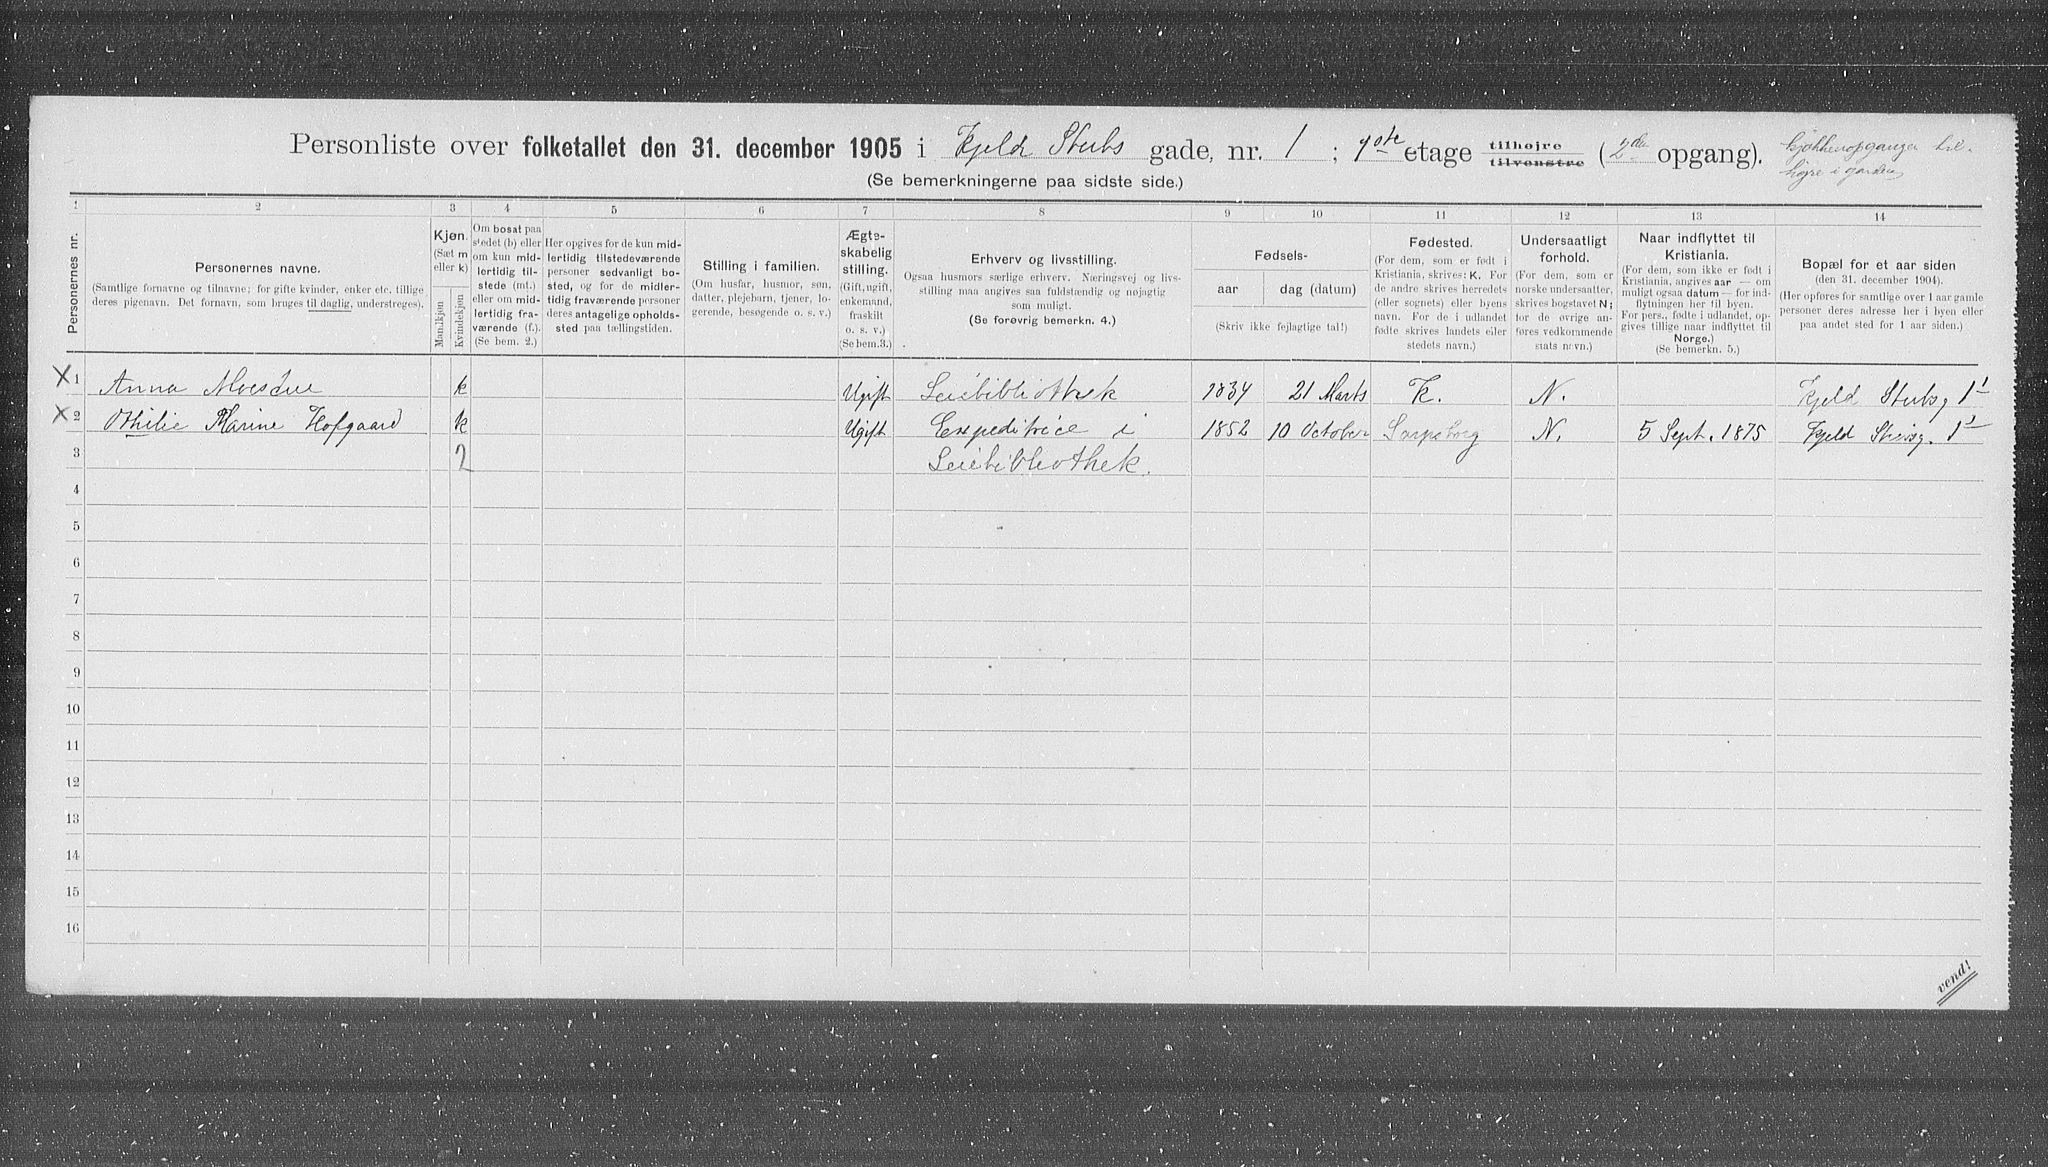 Personliste over folketallet den 31. december 1905 i Kjeld Stubs gade, nr. 1; 1ste etage tilhøjre tilvenstre (2den opgang). Kjøkkenopgangen til højre i gaarden
(Se bemerkningerne paa sidste side.)
1 2 3 4 5 6 7 8 9 10 11 12 13 14
Personernes nr.
Personernes navne.
(Samtlige fornavne og tilnavne; for gifte kvinder, enker etc. tillige
deres pigenavn. Det fornavn, som bruges til daglig, understreges).
Kjøn.
(Sæt m
eller k)
Mandkjøn
Kvindekjøn
Om bosat paa
stedet (b) eller
om kun mid-
lertidig til-
stede (mt.)
eller om mid-
lertidig fra-
værende (f.).
(Se bem. 2.)
Her opgives for de kun mid-
lertidig tilstedeværende
personer sedvanligt bo-
sted, og for de midler-
tidig fraværende personer
deres antagelige opholds-
sted paa tællingstiden.
Stilling i familien.
(Om husfar, husmor, søn,
datter, plejebarn, tjener, lo-
gerende, besøgende o. s. v.)
Ægte-
skabelig
stilling.
(Gift, ugift,
enkemand,
fraskilt
o. s. v.)
(Se bem.3.)
Erhverv og livsstilling.
Ogsaa husmors særlige erhverv. Næringsvej og livs-
stilling maa angives saa fuldstændig og nøjagtig
som muligt.
(Se forøvrig bemerkn. 4.)
Fødsels-
aar
dag (datum)
(Skriv ikke fejlagtige tal!)
Fødested.
(For dem, som er født i
Kristiania, skrives: K. For
de andre skrives herredets
(eller sognets) eller byens
navn. For de i udlandet
fødte skrives landets eller
stedets navn.)
Undersaatligt
forhold.
(For dem, som er
norske undersaatter,
skrives bogstavet N;
for de øvrige an-
føres vedkommende
stats navn.)
Naar indflyttet til
Kristiania.
(For dem, som ikke er født i
Kristiania, angives aar — om
muligt ogsaa datum — for ind-
flytningen her til byen.
For pers., fødte i udlandet, op-
gives tillige naar indflyttet til
Norge.)
(Se bemerkn. 5.)
Bopæl for et aar siden
(den 31. december 1904).
(Her opføres for samtlige over 1 aar gamle
personer deres adresse her i byen eller
paa andet sted for 1 aar siden.)
X 1 Anna k Ugift Leiebibliothek 1834 21 Marts K. N. Kjeld Stubsg 1¹
X 2 Othilie Marine Hofgaard k Ugift Expeditrice i 1852 10 October Sarpsborg N. 5 Sept. 1875 Kjeld Stubsg. 1¹
3 2 Leiebibliothek.
4
5
6
7
8
9
10
11
12
13
14
15
16
vend!